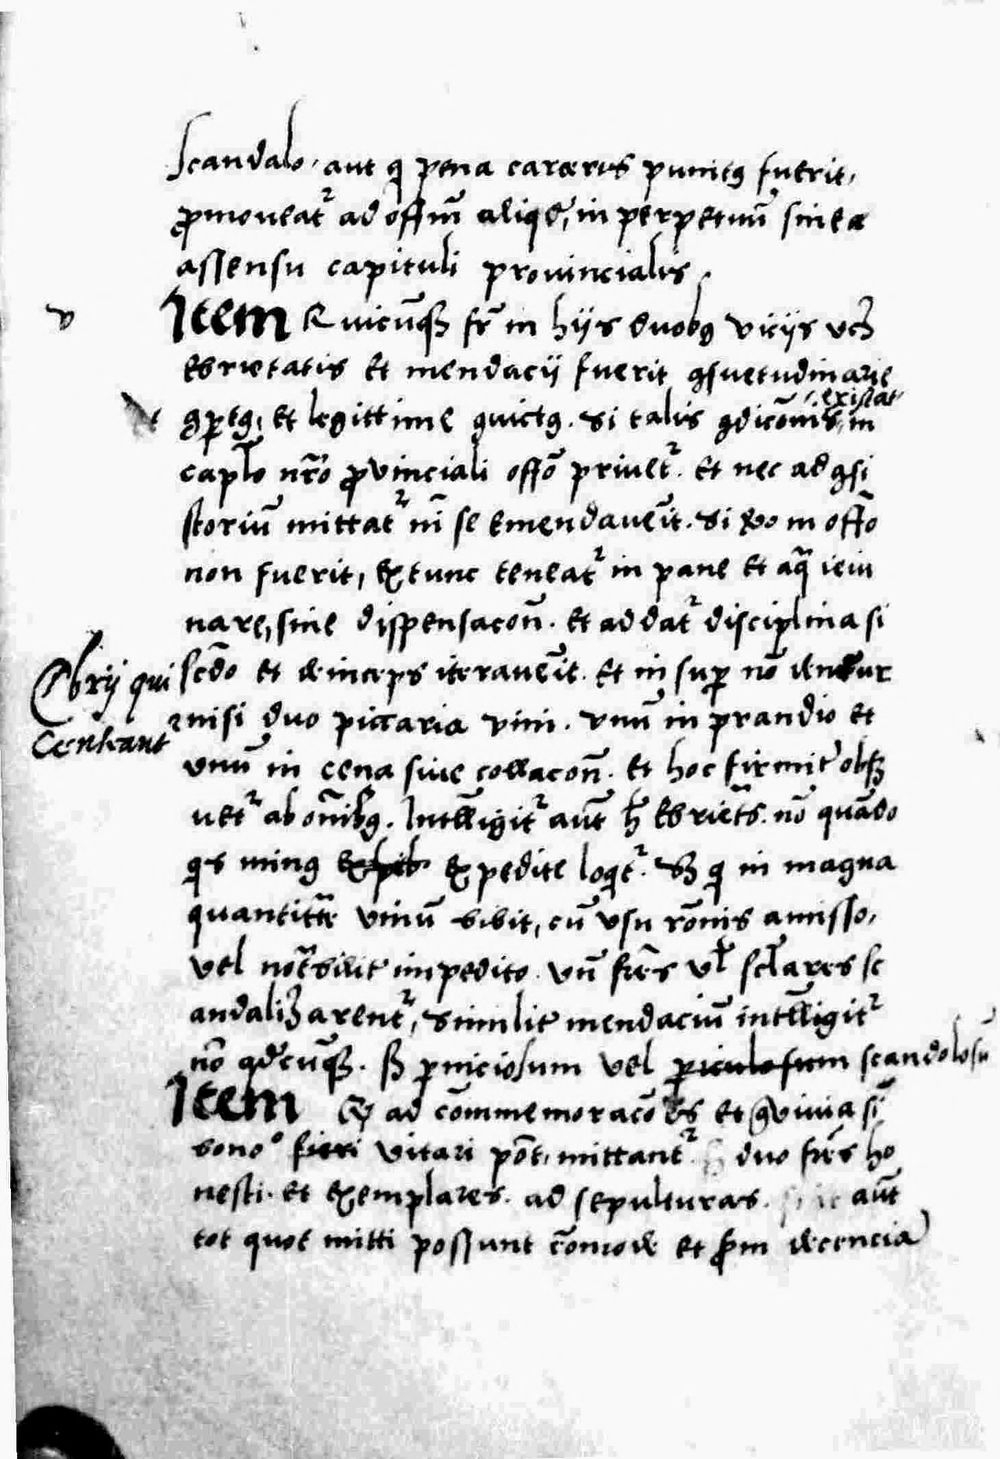 scandalo, aut q̃ pena carceris punitꝯ fuerit,
ꝓmoveat᷑ ad offm̃ aliqđ, in perpetuũ sine
assensu capituli provincialis.
v
Item Quicũqꝫ fr̃ in hijs duobꝯ vicijs vcꝫ
ebrietatis et mendacij fuerit ꝯsuetudinarie
existat
t
et legittime ꝯvictꝯ. si talis ꝯdicõnis, in
caplo nr̃o ꝓvinciali offõ privet᷑. et nec ad ꝯsi
storiũ mittat᷑ nĩ se emendaverit. Si vo in offõ
non fuerit, extunc teneat᷑ in pane et aq̃ ieiu
nare, sine dispensacoñ. et addat᷑ disciplina si
Ebrij qui
scđo et deinceps iteraverit. et insuꝑ nõ dentur
Censeant᷑
nisi duo piccaria vini. vnũ in prandio et
vnũ in cena sive collacoñ. et hoc firmit᷑ obẞ
vet᷑ ab om̃ibꝯ. Intelligit᷑ aut̃ h̃ ebriet̃s. nõ quãdo
q̃s minꝯ expedite loq̃t᷑. Sꝫ q̃ in magna
quantitate vinũ bibit, cũ vsu rõnis amisso,
vel not̃bilit᷑ impedito. vñ fr̃es vl̃ scl̃ares sc
andaliꝫarent᷑, similit᷑ mendaciũ intelligit᷑
nõ qđcũqꝫ. sꝫ ꝑniciosum vel ꝑiculosum scandolosũ
Item Qꝫ ad cõmemoracões et ꝯvivia si
bono° fieri vitari põt, mittant᷑ duo fr̃es ho
nesti. et exemplares. ad sepulturas. aut̃
tot quot mitti possunt cõmode et ẜm decencia